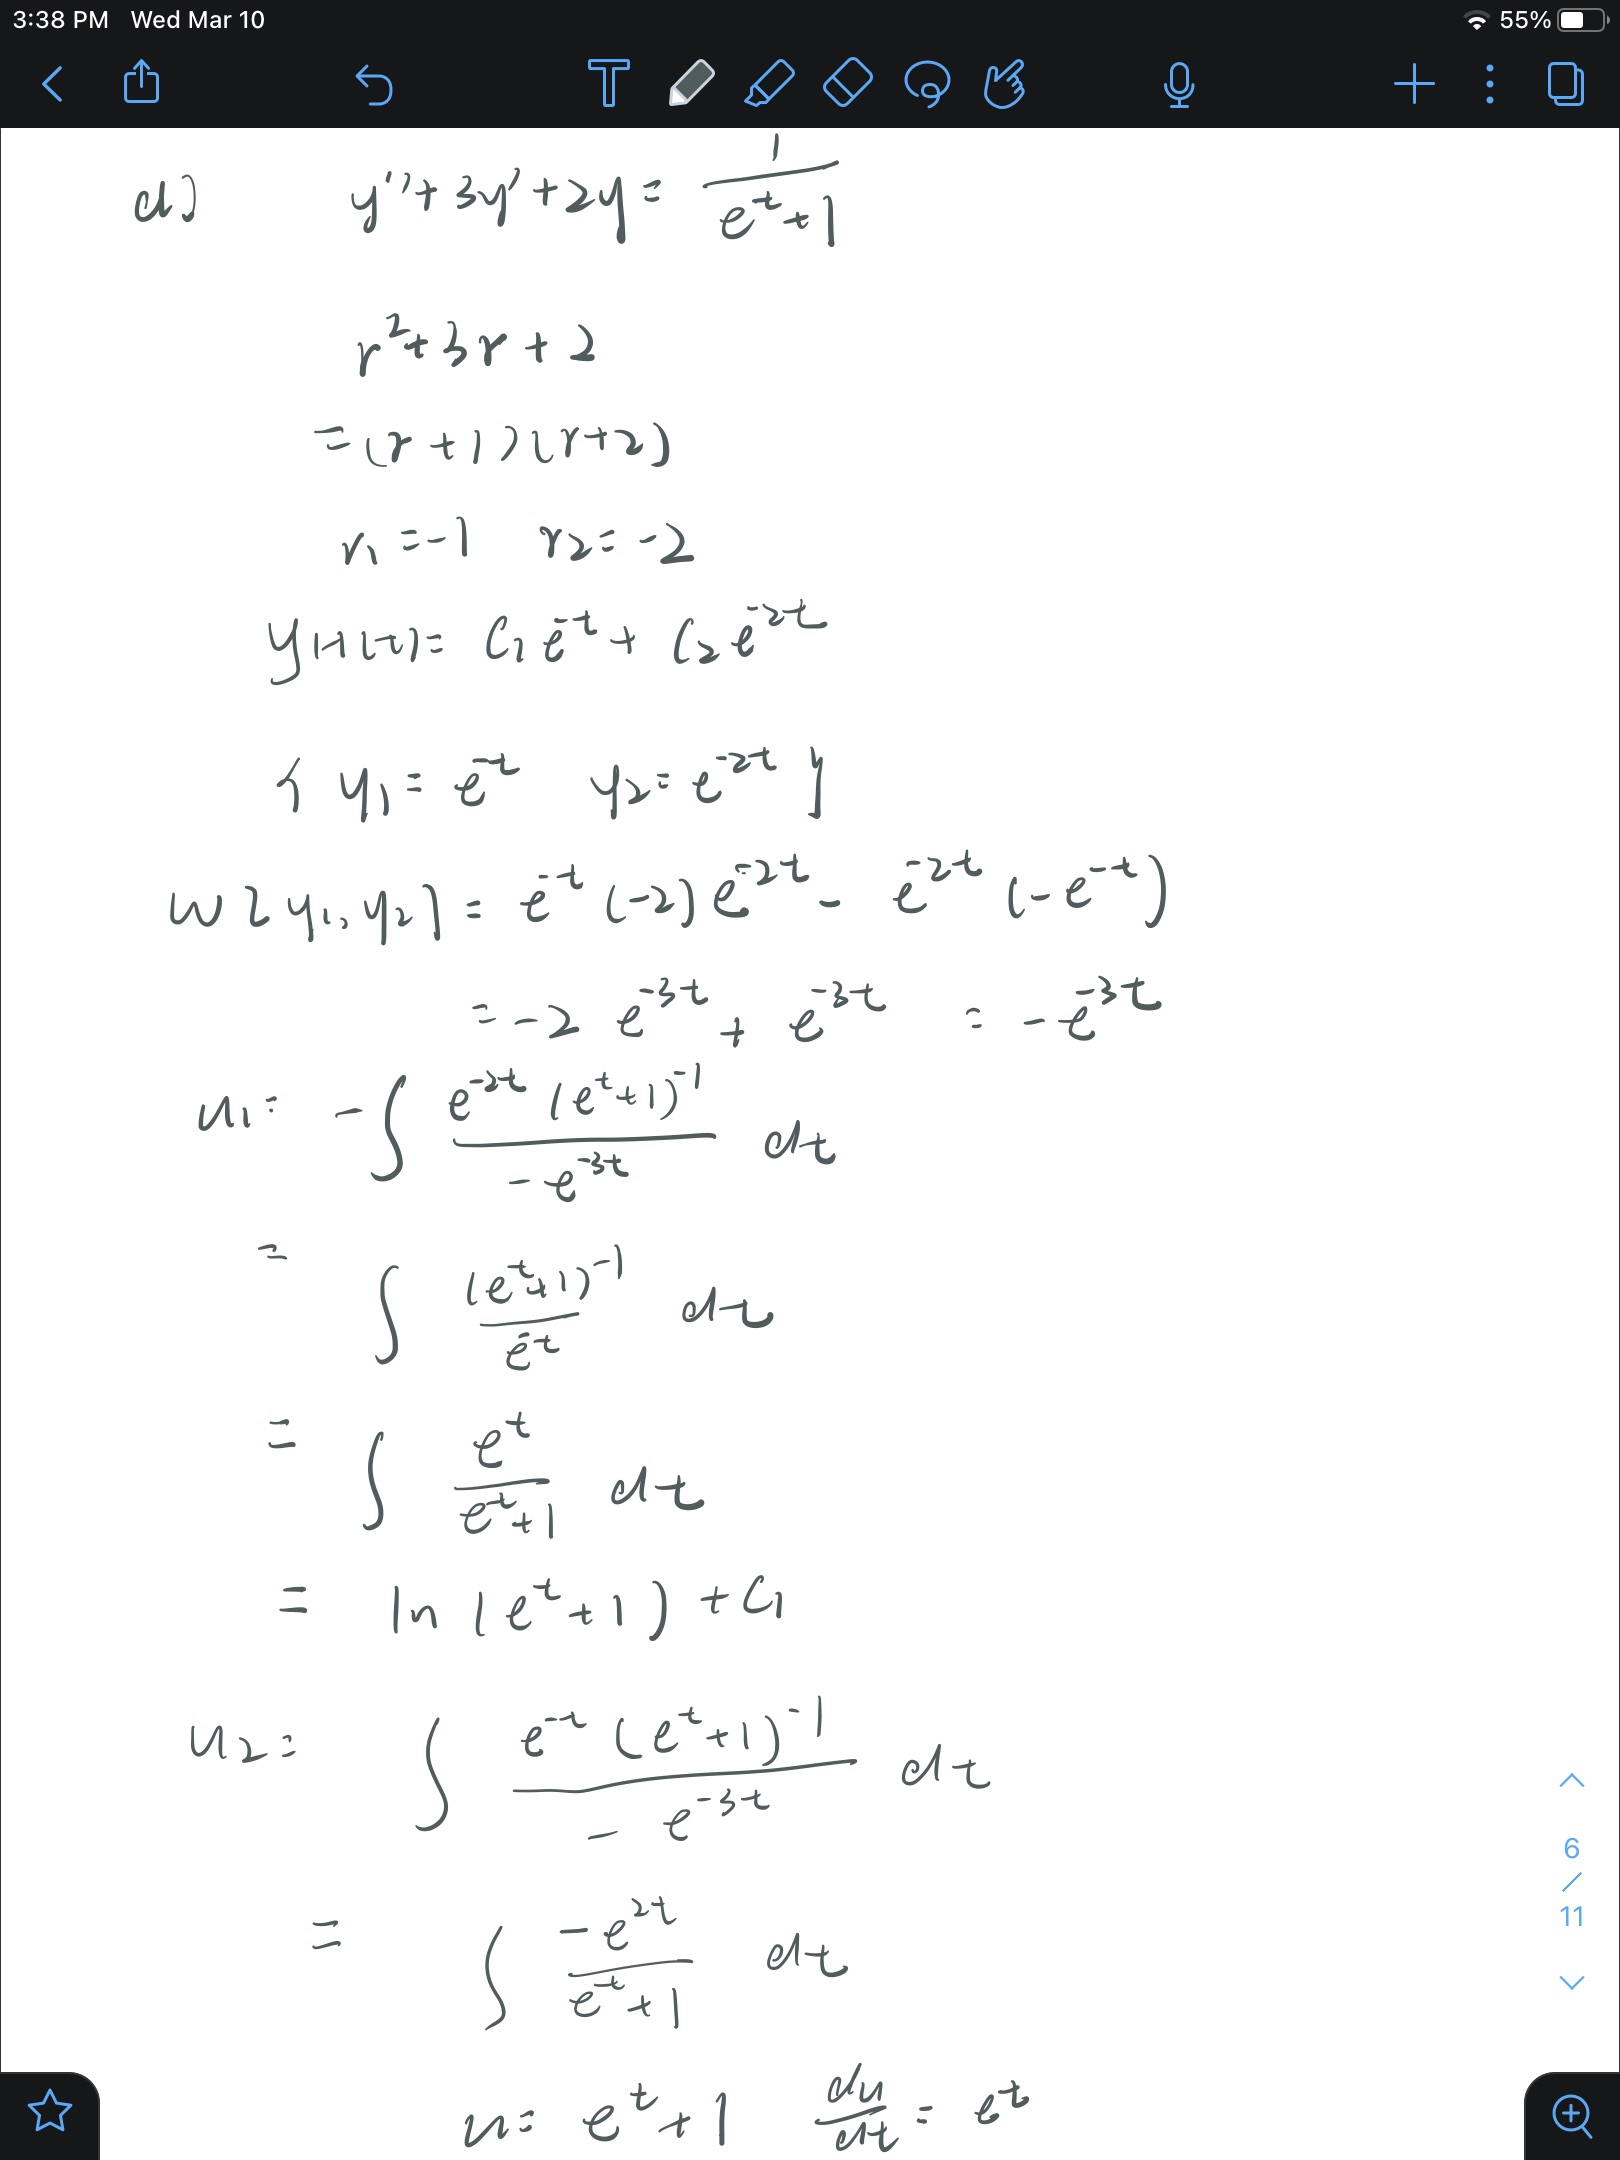 3:38 PM Wed Mar 10 55%
d) y''+3y'+2y= 1/(e^t+1)
r^2+3r+2
=(r+1)(r+2)
r1=-1 r2=-2
yH(t)= C1e^-t+ C2e^-2t
{ y1=e^-t y2=e^-2t }
W[y1,y2]= e^-t(-2)e^-2t - e^-2t(-e^-t)
=-2e^-3t + e^-3t = -e^-3t
u1= -∫ e^-2t(e^t+1)^-1 / -e^-3t dt
= ∫ (e^t+1)^-1 / e^-t dt
= ∫ e^t / e^t+1 dt
= ln(e^t+1)+C1
u2= ∫ e^-t(e^t+1)^-1 / -e^-3t dt
= ∫ -e^2t / e^t+1 dt
u= e^t+1 du/dt = e^t
6
/
11